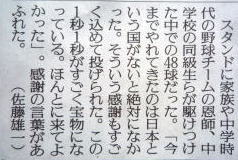 スタンドに家族や中学時
代の野球チームの恩師、中
学校の同級生らが駆けつけ
た中での48球だった。「今
までやれてきたのは日本と
いう国がないと絶対になか
った。そういう感謝もすご
く込めて投げられた。この
1秒1秒がすごく宝物にな
っている。ほんとに来てよ
かった」。感謝の言葉があ
ふれた。
（佐藤雄一）